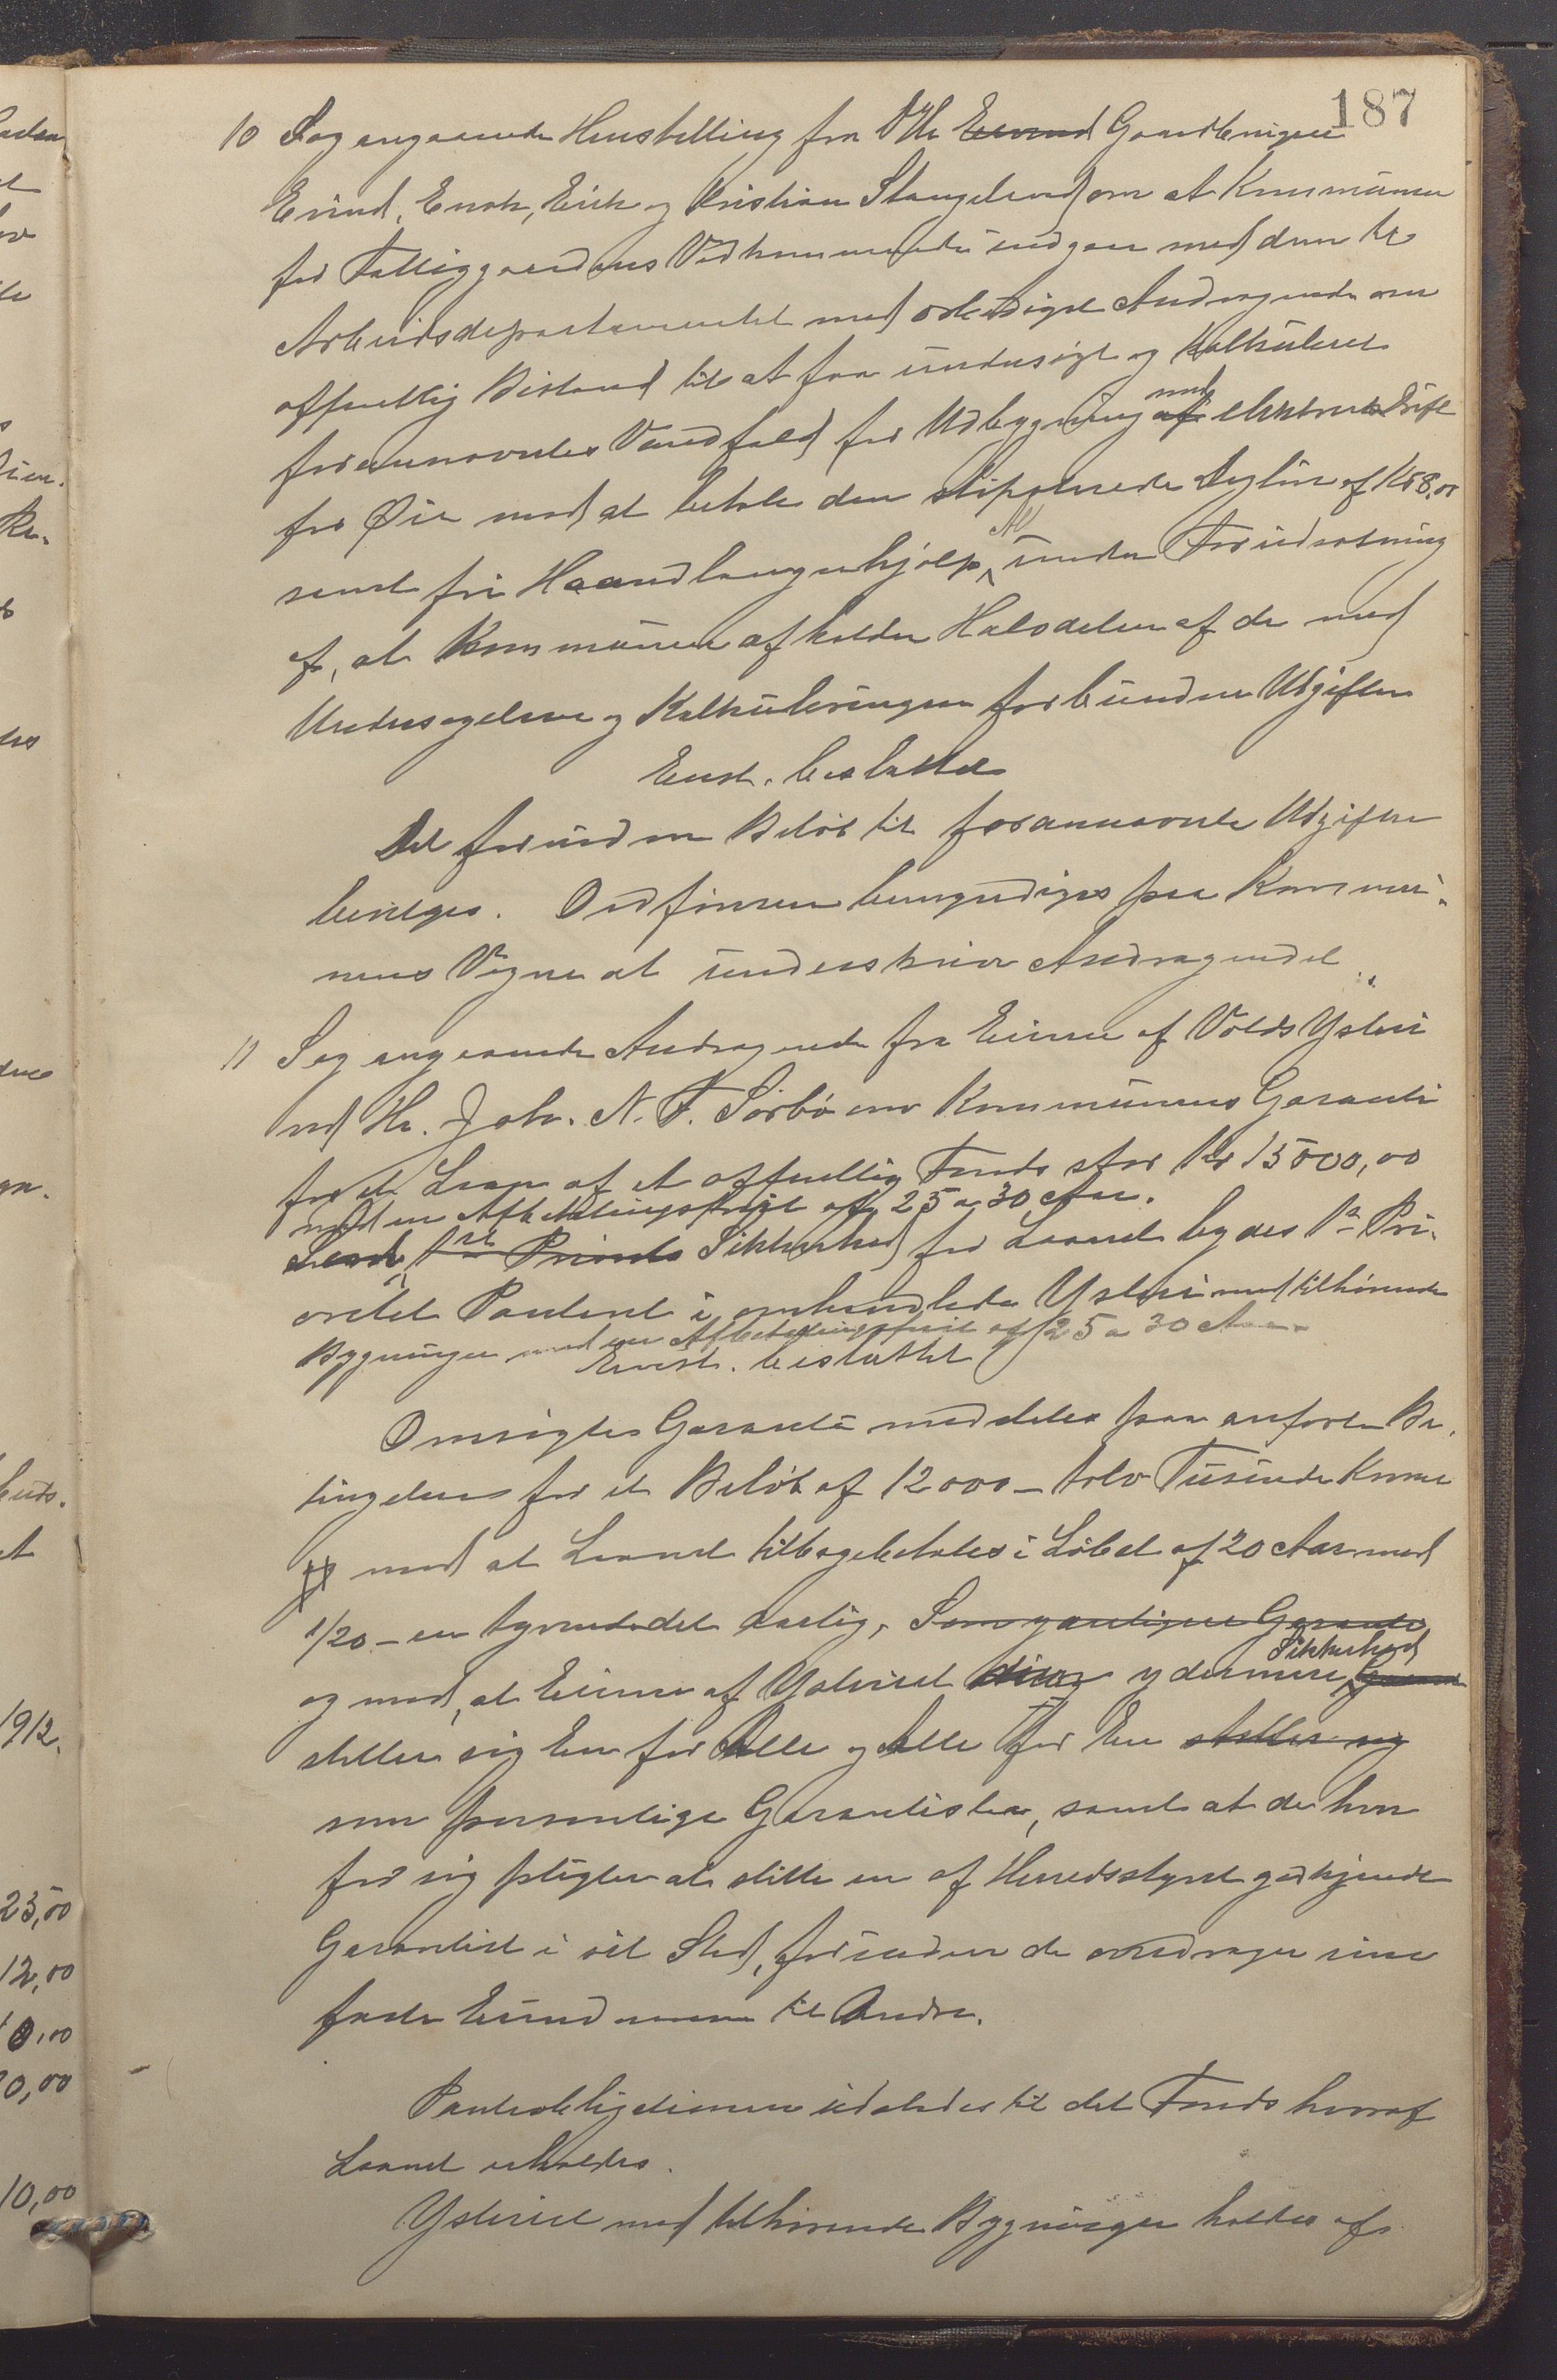 187
10 Sag angaaende Henstilling fra DHr Eivind Gaardbrugere
Eivind, Enok, Erik og Kristian Stangeland om at Kommunen
for Fattiggaardens Vedkommende indgaar med dem til
Arbeidsdepartementet med Andragende om
offentlig Bistand til at faa undersøgt og kalkuleret
forannævntes Vandfald for Udbygning af med elektrisk Drift
for Øie mod at betale den stipulerede Dagløn af Kr 8,00
samt fri Haandlangerhjælp, Alt under Forudsætning
af, at Kommunen afholder Halvdelen af de med
Undersøgelsen og Kalkuleringen forbundne Udgifter
Enst. besluttet
Det fornødne Beløb til forannævnte Udgifter
bevilges. Ordføreren bemyndiges paa Kommu-
nens Vegne at underskrive Andragendet.
11 Sag angaaende Andragende fra Eierne af Volds Ysteri
ved Hr. Joh. N. F. Sørbø om Kommunens Garanti
for et Laan af et offentlig Fonds stor Kr 15000,00
med en Afbetalingsfrist af 25 a 30 Aar.
Som 1ste Priorits Sikkerhed for Laanet bydes 1ste Pri-
oritet Panteret i omhandlede Ysteri med tilhørende
Bygninger med en Afbetalingsfrist af 25 a 30 Aar
Enst. besluttet
Omsøgtes Garanti meddeles paa anførte Be-
tingelser for et Beløb af 12000 – tolv Tusinde Kroner
mod at Laanet tilbagebetales i Løbet af 20 Aar med
1/20 – en tyvendedel aarlig, Som yderligere Garanti
og mod, at Eierne af Ysteriet ydermere Sikkerhed
stiller sig En for Alle og Alle for En stiller sig
som personlige Garantister, samt at de hver
for sig pligter at stille en af Herredsstyret godkjendt
Garantist i sit Sted, forinden de overdrager sine
faste Eiendomme til Andre.
Panteobligationen udstedes til det Fonds hvoraf
Laanet erholdes.
Ysteriet med tilhørende Bygninger holdes af
1912.
25,00
12,00
0,00
0,00
10,00